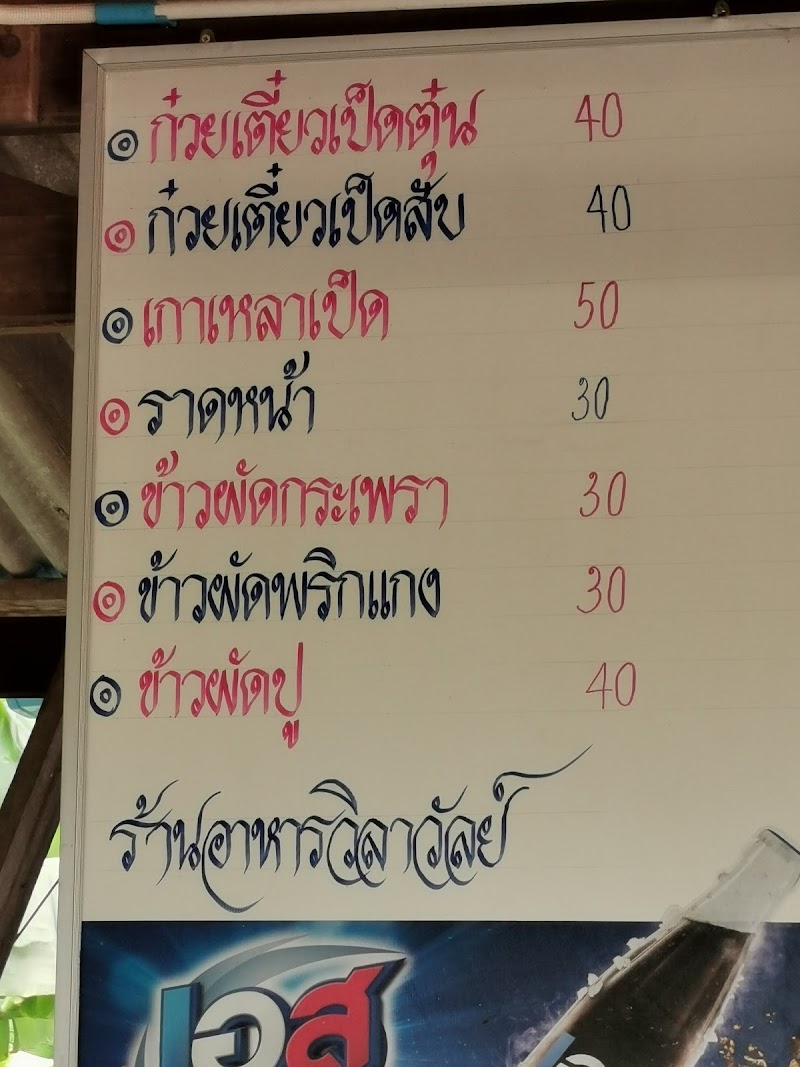 ก๋วยเตี๋ยวเป็ดตุ๋น 40
ก๋วยเตี๋ยวเป็ดสับ 40
เกาเหลาเป็ด 50
ราดหน้า 30
ข้าวผัดกระเพรา 30
ข้าวผัดพริกแกง 30
ข้าวผัดปู 40
ร้านอาหารวิลาวัลย์
เอส